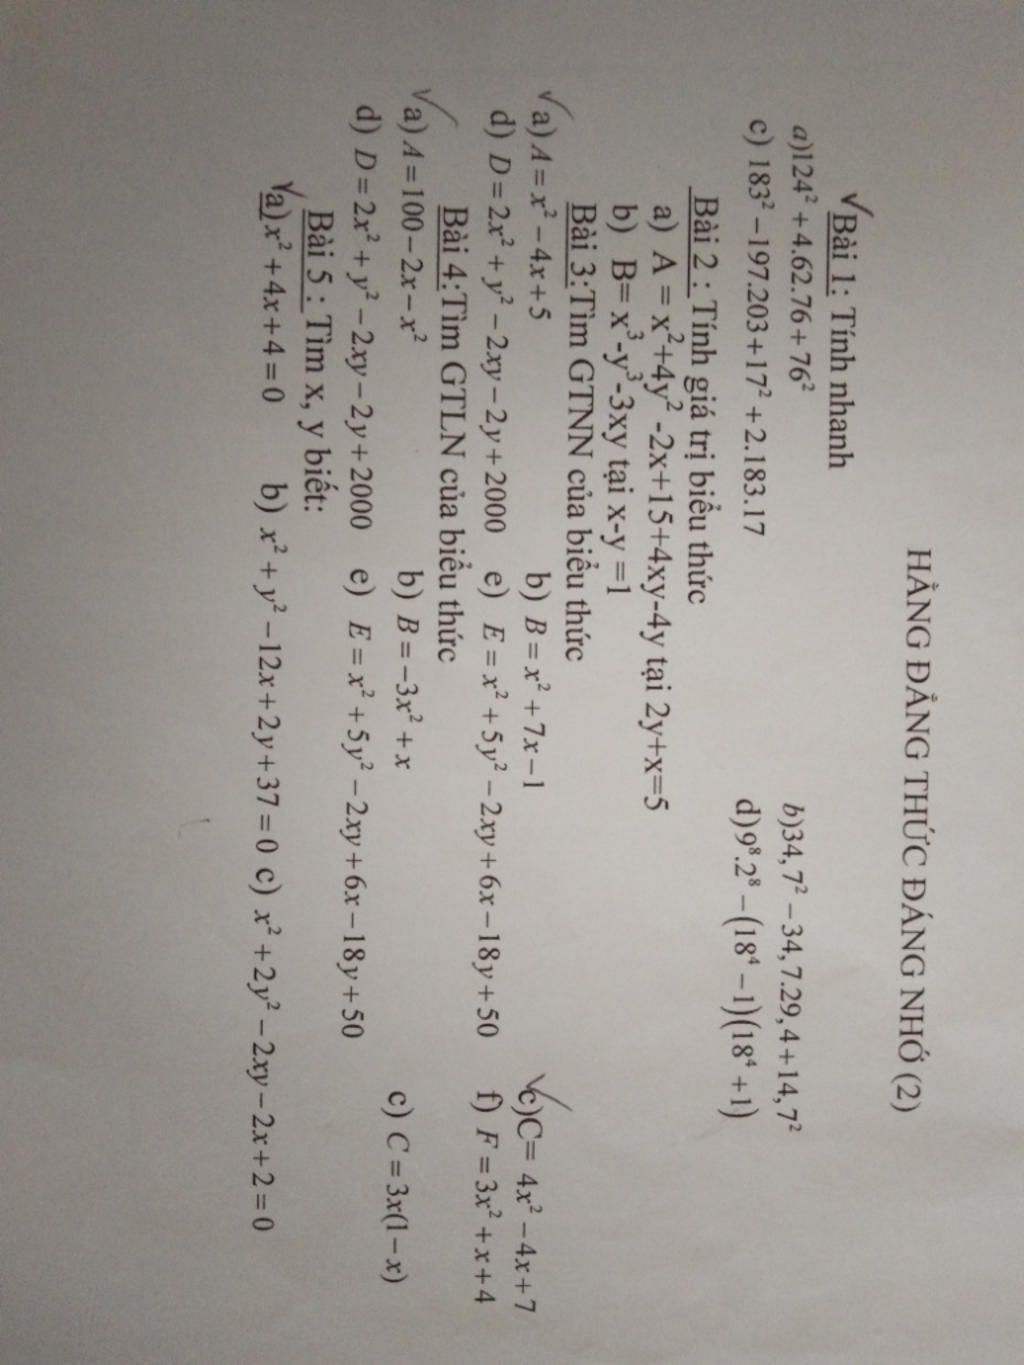 HẰNG ĐẲNG THỨC ĐÁNG NHỚ (2)
Bài 1: Tính nhanh
a)124² + 4.62.76 + 76² b)34,7² − 34,7.29,4 + 14,7²
c) 183² − 197.203 + 17² + 2.183.17 d)9⁸.2⁸ − (18⁴ − 1)(18⁴ + 1)
Bài 2 : Tính giá trị biểu thức
a) A = x²+4y² -2x+15+4xy-4y tại 2y+x=5
b) B= x³-y³-3xy tại x-y =1
Bài 3:Tìm GTNN của biểu thức
a) A = x² − 4x + 5 b) B = x² + 7x − 1 c)C= 4x² − 4x + 7
d) D = 2x² + y² − 2xy − 2y + 2000 e) E = x² + 5y² − 2xy + 6x − 18y + 50 f) F = 3x² + x + 4
Bài 4:Tìm GTLN của biểu thức
a) A = 100 − 2x − x² b) B = −3x² + x c) C = 3x(1 − x)
d) D = 2x² + y² − 2xy − 2y + 2000 e) E = x² + 5y² − 2xy + 6x − 18y + 50
Bài 5 : Tìm x, y biết:
a)x² + 4x + 4 = 0 b) x² + y² − 12x + 2y + 37 = 0 c) x² + 2y² − 2xy − 2x + 2 = 0